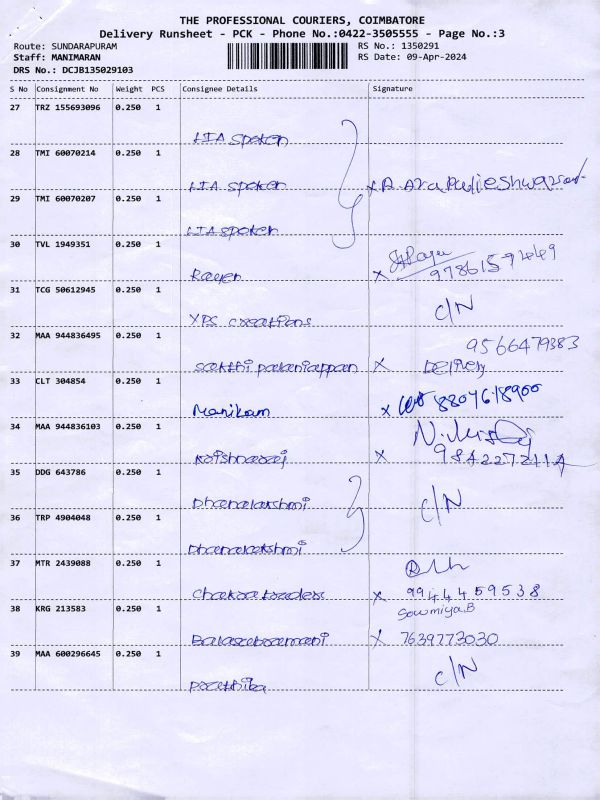 THE PROFESSIONAL COURIERS, COIMBATORE
Delivery Runsheet - PCK - Phone No.:0422-3505555 - Page No.:3
Route: SUNDARAPURAM RS No.: 1350291
Staff: MANIMARAN RS Date: 09-Apr-2024
DRS No.: DCJB135029103
S No Consignment No Weight PCS Consignee Details Signature
27 TRZ 155693096 0.250 1
LIA spoken
28 TMI 60070214 0.250 1
LIA spoken x
29 TMI 60070207 0.250 1
LIA spoken
30 TVL 1949351 0.250 1
Rayen x 9786159449
31 TCG 50612945 0.250 1 C/N
YPS creations
32 MAA 944836495 0.250 1 9566479383
sakthi palaniappan x Delivery
33 CLT 304854 0.250 1
Manikam x 8807618900
34 MAA 944836103 0.250 1
krishnaraj x 9842272117
35 DDG 643786 0.250 1
Dhanalakshmi C/N
36 TRP 4904048 0.250 1
Dhanalakshmi
37 MTR 2439088 0.250 1
Chakra traders x 9944459538
38 KRG 213583 0.250 1 Sowmiya.B
Balasubramani x 7639773030
39 MAA 600296645 0.250 1 C/N
prathiba